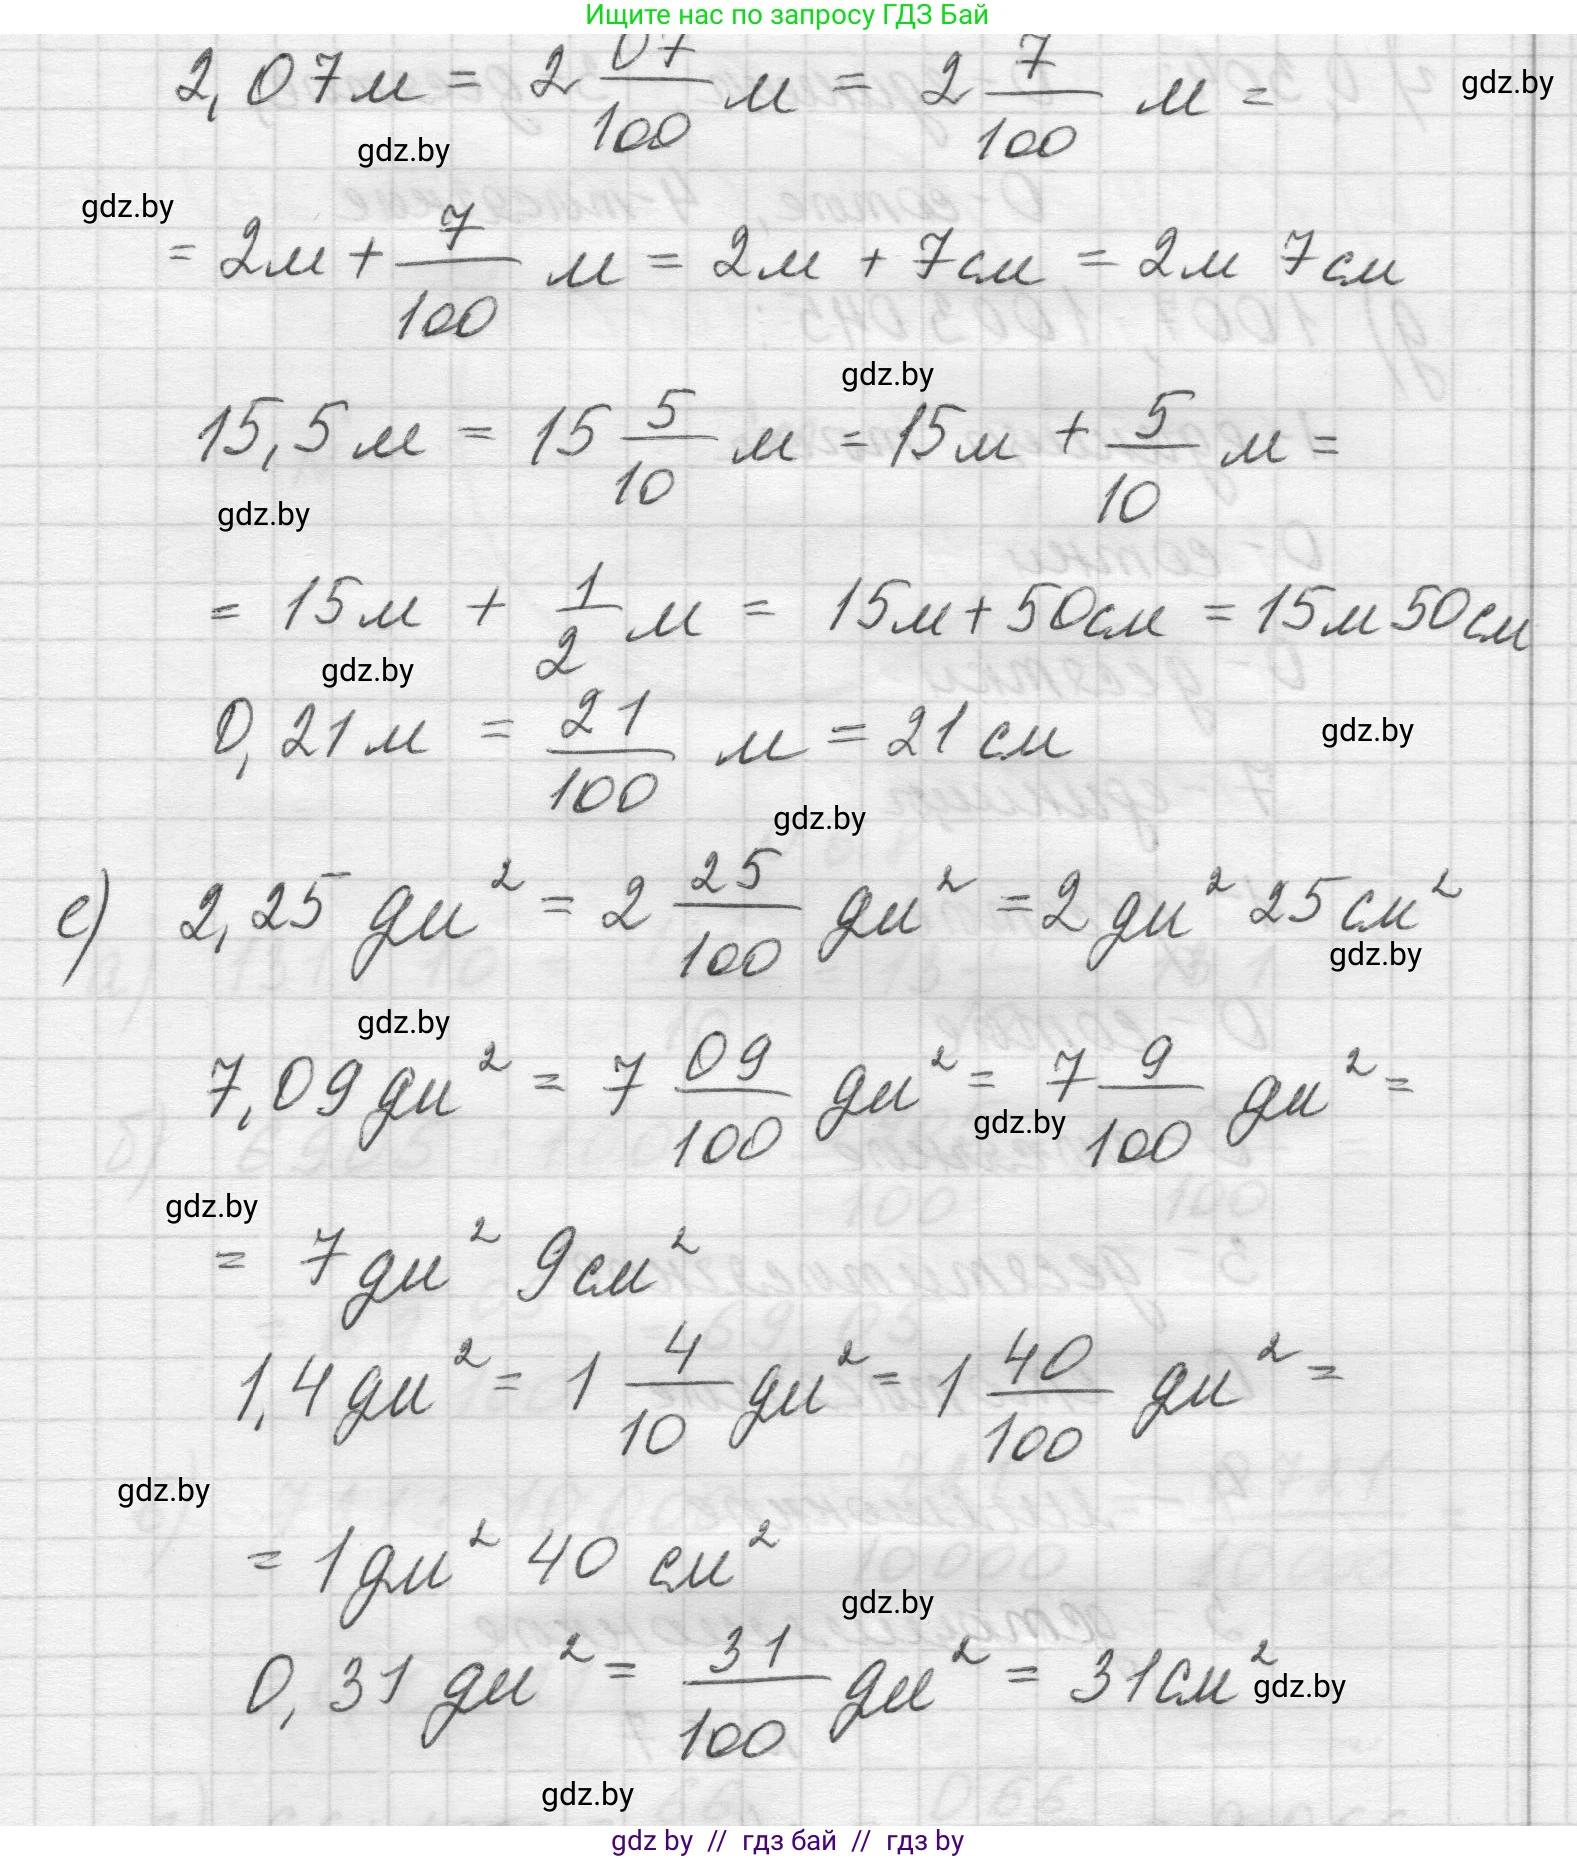 Ищите нас по запросу ГДЗ Бай
2,07м = 2 07/100 м = 2 7/100 м =
gdz.by
gdz.by
gdz.by
= 2м + 7/100 м = 2м + 7см = 2м 7см
gdz.by
15,5м = 15 5/10 м = 15м + 5/10 м =
gdz.by
= 15м + 1/2 м = 15м + 50см = 15м 50см
gdz.by
0,21м = 21/100 м = 21 см
gdz.by
gdz.by
е) 2,25 дм² = 2 25/100 дм² = 2 дм² 25 см²
gdz.by
gdz.by
7,09 дм² = 7 09/100 дм² = 7 9/100 дм² =
gdz.by
gdz.by
= 7 дм² 9 см²
1,4 дм² = 1 4/10 дм² = 1 40/100 дм² =
gdz.by
= 1 дм² 40 см²
gdz.by
0,31 дм² = 31/100 дм² = 31 см²
gdz.by
gdz.by
gdz by // гдз бай // гдз by